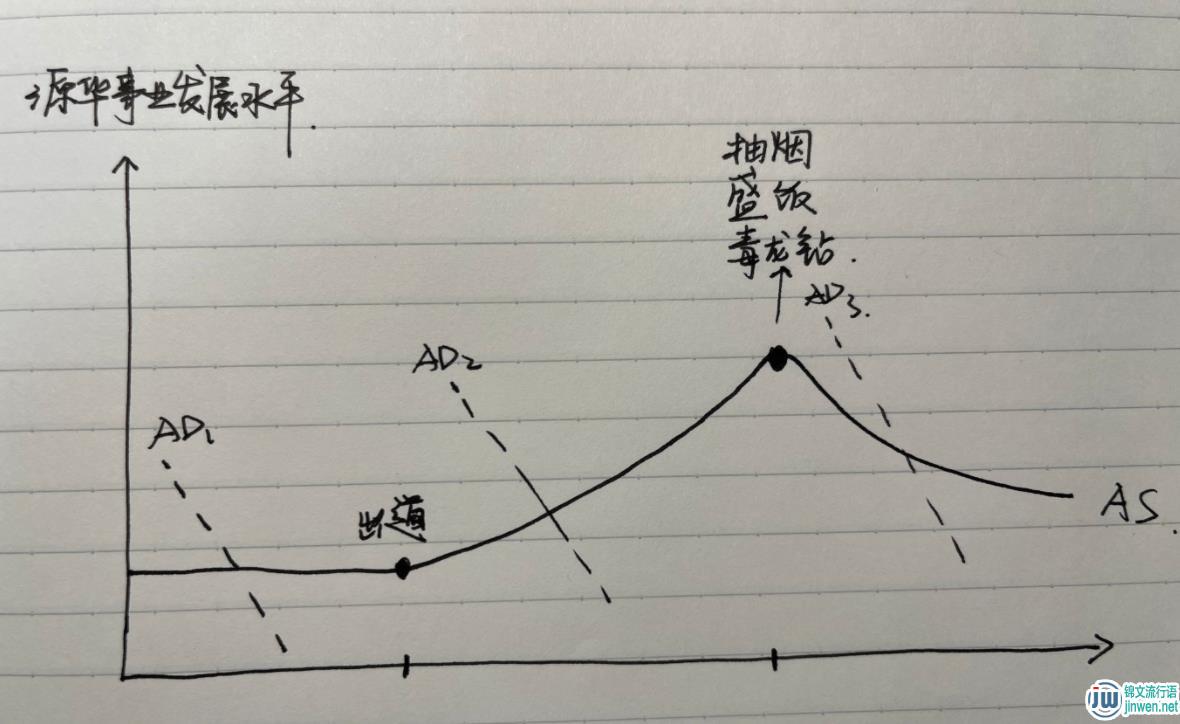 源华事业发展水平.
抽烟
盛饭
毒龙钻.
AD3.
AD2
AD1
出道
AS.
JW 锦文流行语
jinwen.net